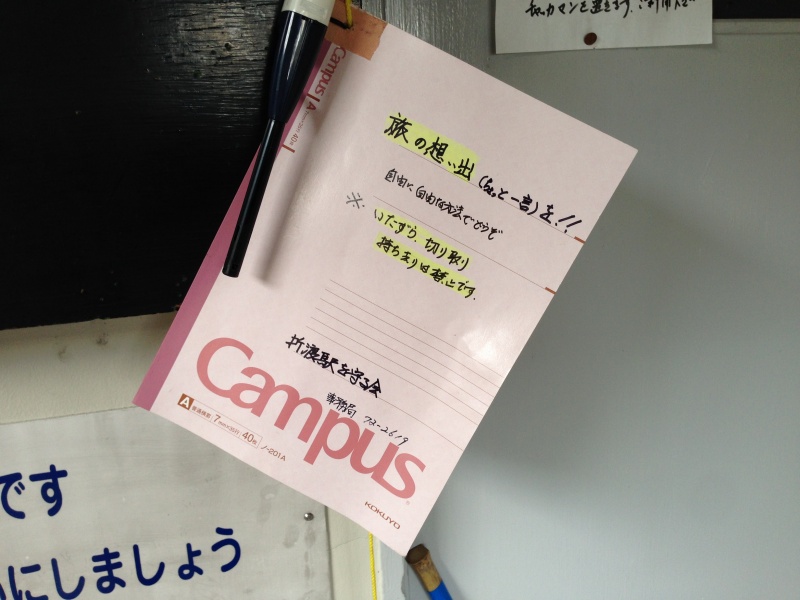 チャッカマンを置きます。ご利用下さい
Campus
A
40枚
旅の想い出(ちょっと一言)を!!
自由に自由な方法でどうぞ
※ いたずら、切り取り
持ち去りは禁止です。
折渡駅を守る会
事務局 72-2619
Campus
A 普通横罫 7mm×30行 40枚 ノ-201A
KOKUYO
です
にしましょう